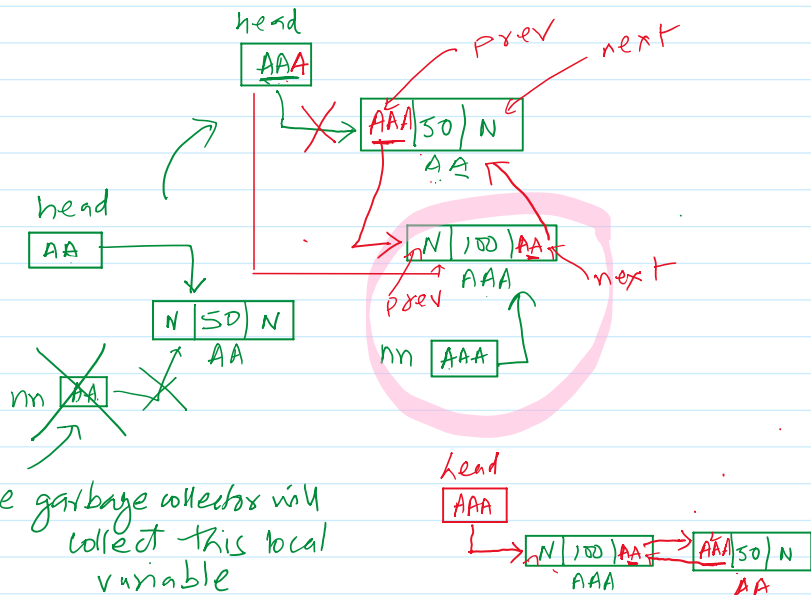 head
AAA
prev
next
AAA 50 N
AA
head
AA
N 100 AA
AAA
prev
next
N 50 N
AA
nn AAA
nn AA
head
AAA
e garbage collector will
collect this local
variable
N 100 AA
AAA
AAA 50 N
AA